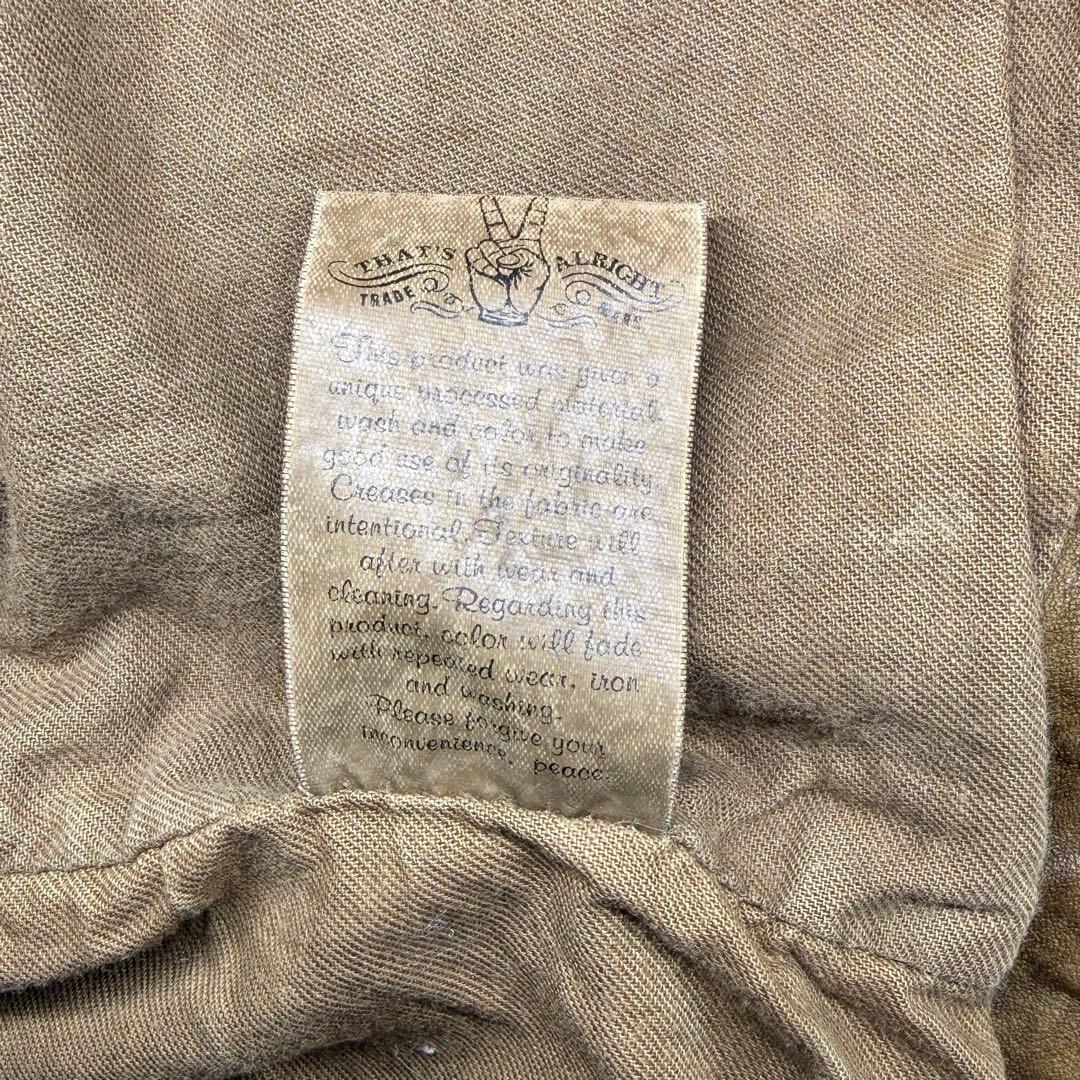 THAT'S ALRIGHT
TRADE MARK
This product was given a
unique processed material,
wash and color to make
good use of its originality.
Creases in the fabric are
intentional. Texture will
after with wear and
cleaning. Regarding this
product, color will fade
with repeated wear, iron
and washing.
Please forgive your
inconvenience, peace.